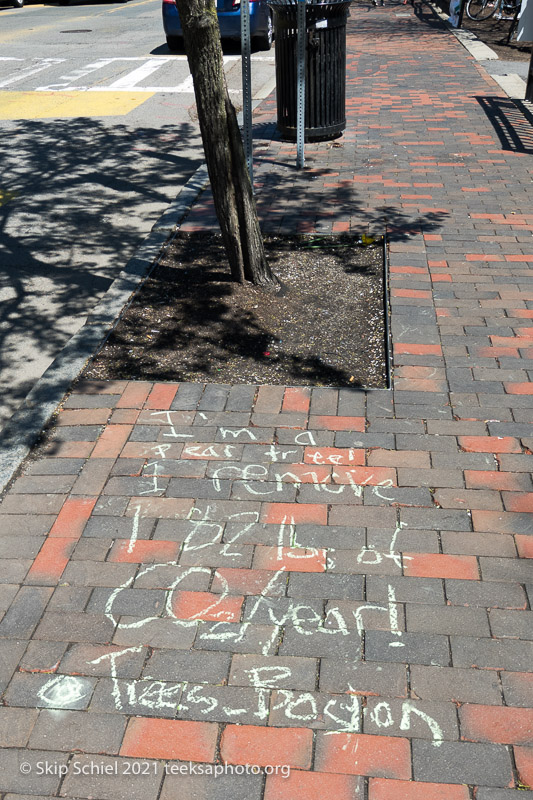 I'm a
pear tree!
I remove
182 lb. of
CO2/year!
@Trees_Bayton
© Skip Schiel 2021 teeksaphoto.org